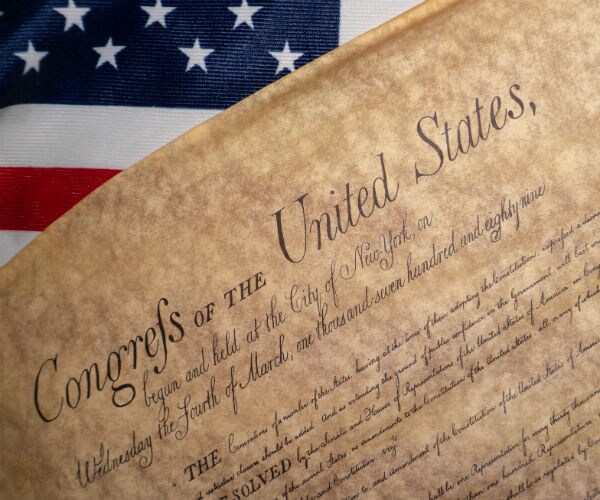 Congreſs OF THE United States,
begun and held at the City of New-York, on
Wednesday the Fourth of March, one thousand and seven hundred and eighty nine.
THE Conventions of a number of the States, having at the time of their adopting the Constitution, expressed a
restrictive clauses should be added: And as extending the ground of public confidence in the Government, will best
RESOLVED by the Senate and House of Representatives of the United States of America, in Congress
as amendments to the Constitution of the United States, all, or any of which
said Constitution; viz.
to, and amendment of the Constitution of the United States of America
shall be one Representative for every thirty thousand
one hundred Representatives
be so regulated by